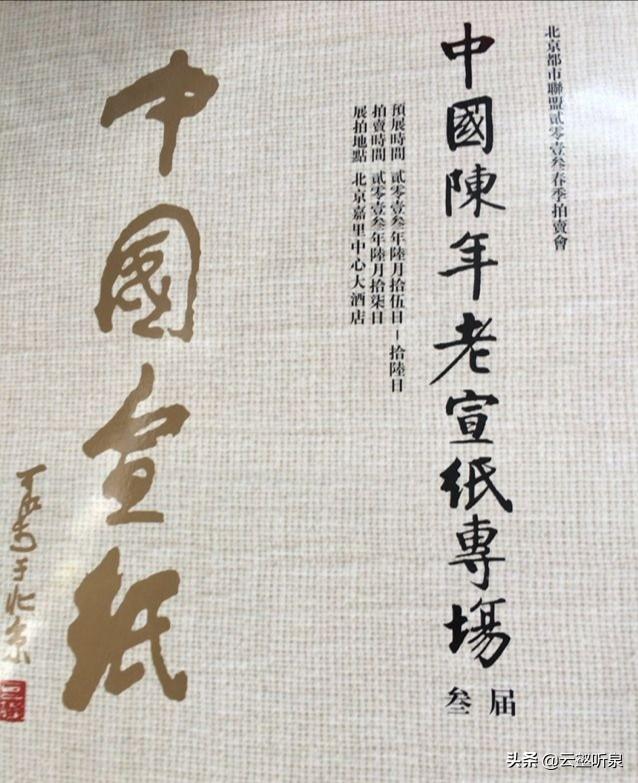 北京都市聯盟貳零壹叁春季拍賣會
中國陳年老宣紙專場
叁届
預展時間 貳零壹叁年陸月拾伍日－拾陸日
拍賣時間 貳零壹叁年陸月拾柒日
展拍地點 北京嘉里中心大酒店
中國宣紙
于北京
头条 @云壑听泉